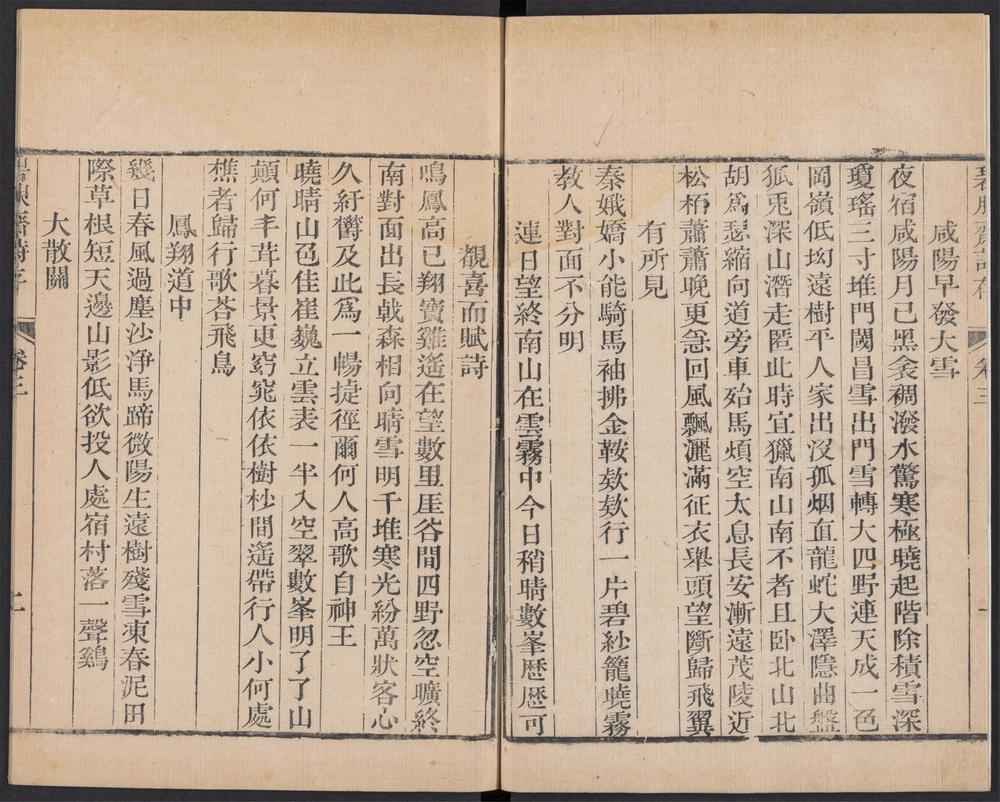 咸陽早發大雪
夜宿咸陽月已黑衾裯潑水驚寒極曉起階除積雪深
瓊瑤三寸堆門閾昌雪出門雪轉大四野連天成一色
岡嶺低㘭遠樹平人家出沒孤烟直龍蛇大澤隱曲盤
狐兎深山潛走匿此時宜獵南山南不者且卧北山北
胡爲瑟縮向道旁車殆馬煩空太息長安漸遠茂陵近
松栢蕭蕭晚更急回風飄灑滿征衣舉頭望斷歸飛翼
有所見
秦娥嬌小能騎馬袖拂金鞍欸欸行一片碧紗籠曉霧
教人對面不分明
連日望終南山在雲霧中今日稍晴數峯歴歴可
覩喜而賦詩
鳴鳳高已翔寶雞遙在望數里厓谷間四野忽空曠終
南對面出長戟森相向晴雪明千堆寒光紛萬狀客心
久紆鬱及此爲一暢捷徑爾何人高歌自神王
曉晴山色佳崔巍立雲表一半入空翠數峯明了了山
顚何丰茸暮景更窈窕依依樹杪間遙帶行人小何處
樵者歸行歌荅飛鳥
鳳翔道中
幾日春風過塵沙淨馬蹄微陽生遠樹殘雪凍春泥田
際草根短天邊山影低欲投人處宿村落一聲鷄
大散關
卷三
二